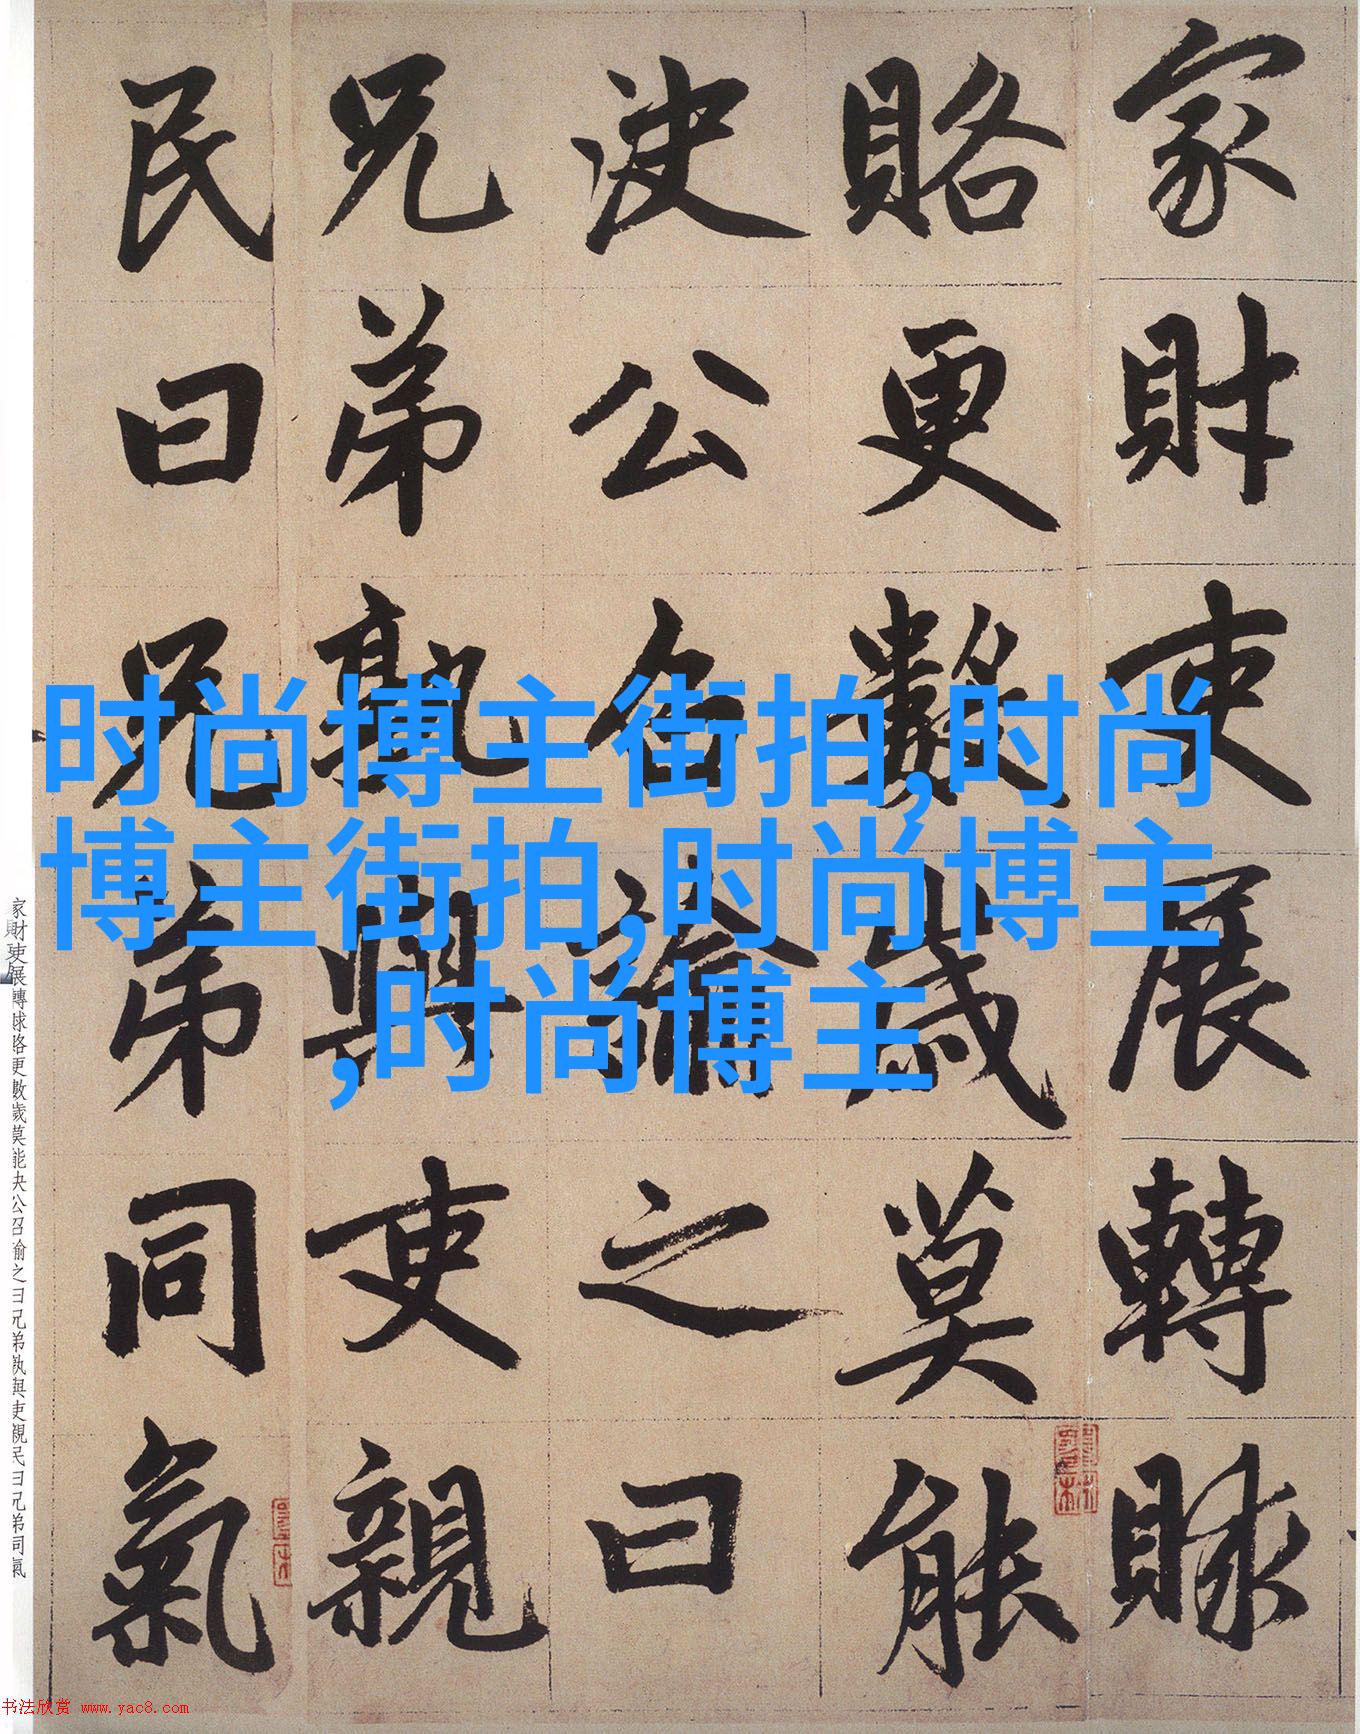 家財吏展轉賕
賂更數歲莫能
決公召諭之曰
兄弟孰與吏親
民曰兄弟同氣
时尚博主街拍,时尚
博主街拍,时尚博主
,时尚博主
家財吏展轉賕賂更數歲莫能决公召諭之曰兄弟孰與吏親民曰兄弟同氣
书法欣赏 www.yac8.com